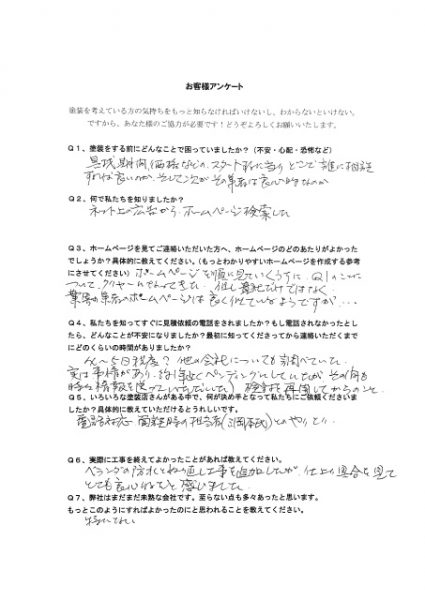 お客様アンケート
塗装を考えている方の気持ちをもっと知らなければいけないし、わからないといけない。
ですから、あなた様のご協力が必要です！どうぞよろしくお願いいたします。
Q1、塗装をする前にどんなことで困っていましたか？（不安・心配・恐怖など）
価格などの、スタート時に当り どこで 誰に相談
すれば良いのか、そして次が その業者は良心的なのか
Q2、何で私たちを知りましたか？
ネット上の広告から、ホームページ検索した
Q3、ホームページを見てご連絡いただいた方へ、ホームページのどのあたりがよかった
でしょうか？具体的に教えてください。（もっとわかりやすいホームページを作成する参考
にさせてください）ホームページを順に見ていくうちに、Q1のことに
ついて、クリヤーになってきた。但し 御社だけではなく
業界の業者のホームページは良く似ているようですが・・・
Q4、私たちを知ってすぐに見積依頼の電話をされましたか？もし電話されなかったとし
たら、どんなことが不安になりましたか？最初に知ってくださってから連絡いただくまで
にどのくらいの時間がありましたか？
4～5日程度？他の会社についても調べていた
実は事情があり、約1年近くペンディングしていたが その間も
検討再開してからのこと
Q5、いろいろな塗装店さんがある中で、何が決め手となって私たちにご依頼くださいま
したか？具体的に教えていただけるとうれしいです。
電話対応 面談時の担当者とのやりとり
Q6、実際に工事を終えてよかったことがあれば教えてください。
ベランダの防水とぬり直し工事を追加したが、仕上り具合を見て
とても良かったと感じました
Q7、弊社はまだまだ未熟な会社です。至らない点も多々あったと思います。
もっとこのようにすればよかったのにと思われることを教えてください。
特にない